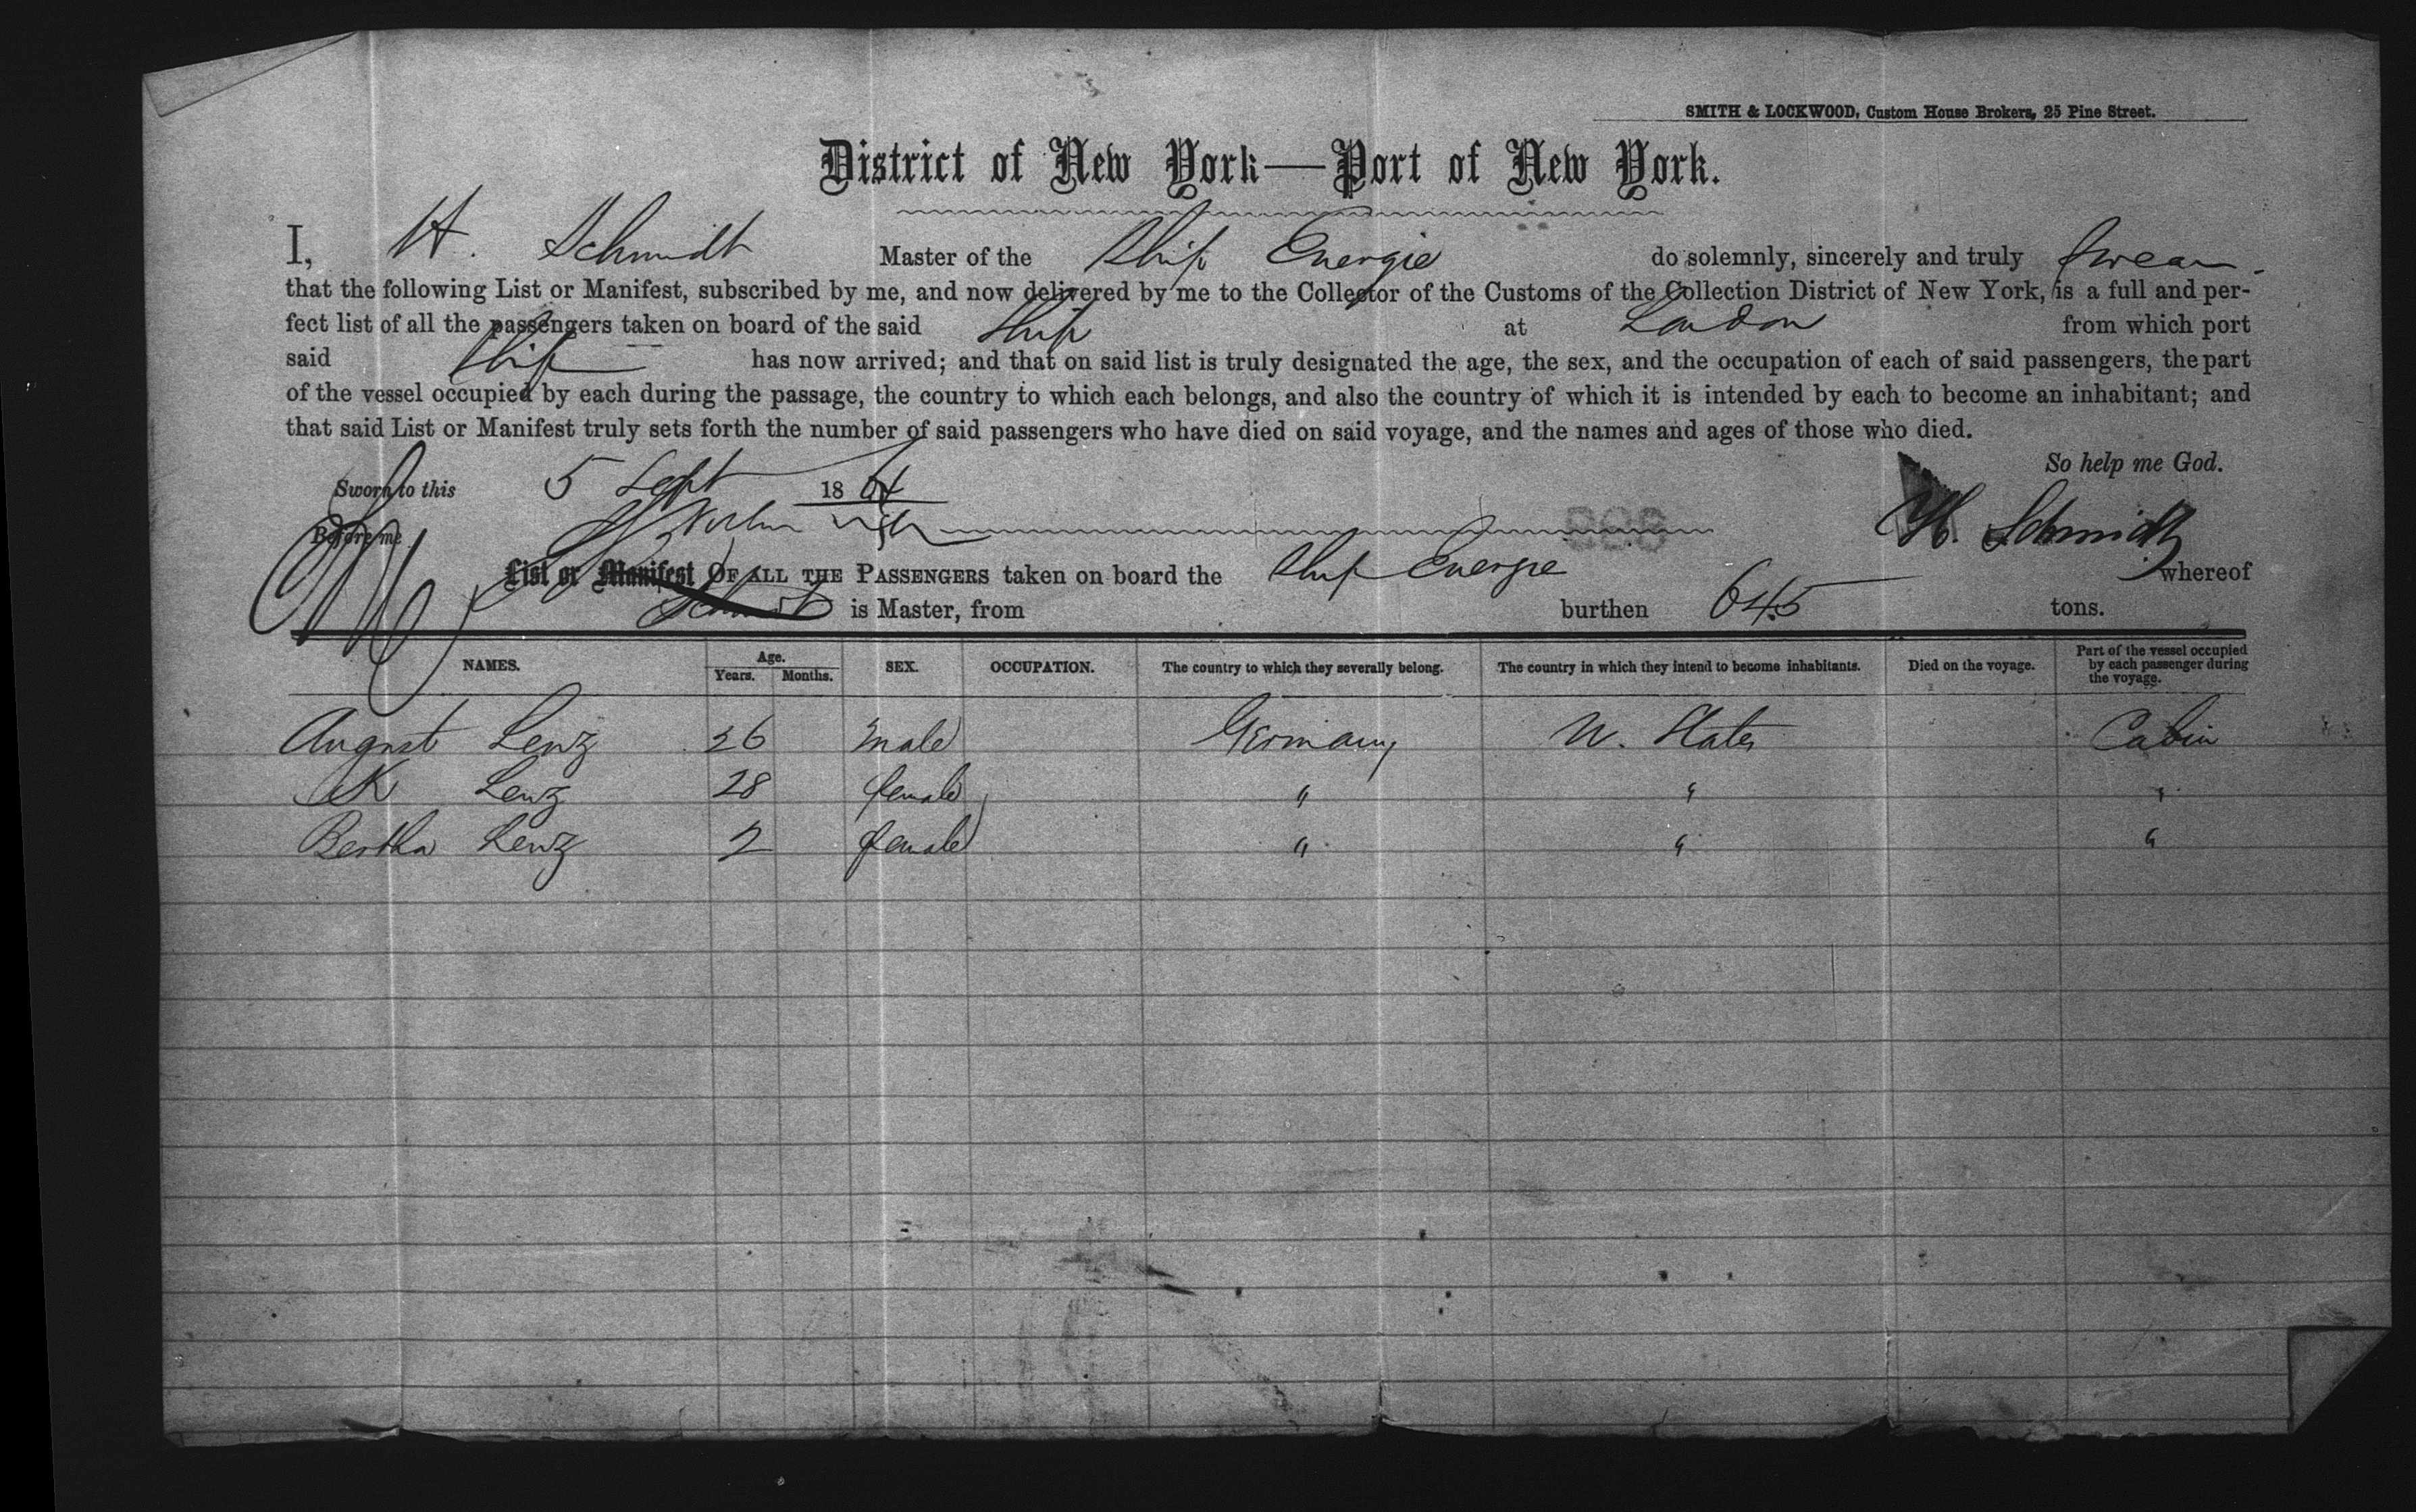 SMITH & LOCKWOOD, Custom House Brokers, 25 Pine Street.
District of New York—Port of New York.
I, H. Schmidt Master of the Ship Energie do solemnly, sincerely and truly swear
that the following List or Manifest, subscribed by me, and now delivered by me to the Collector of the Customs of the Collection District of New York, is a full and per-
fect list of all the passengers taken on board of the said Ship at London from which port
said Ship has now arrived; and that on said list is truly designated the age, the sex, and the occupation of each of said passengers, the part
of the vessel occupied by each during the passage, the country to which each belongs, and also the country of which it is intended by each to become an inhabitant; and
that said List or Manifest truly sets forth the number of said passengers who have died on said voyage, and the names and ages of those who died.
So help me God.
Sworn to this 5 Sept 1864
Before me H. Schmidt
List or Manifest OF ALL THE PASSENGERS taken on board the Ship Energie whereof
Schmidt is Master, from burthen 645 tons.
NAMES. Age. Years. Months. SEX. OCCUPATION. The country to which they severally belong. The country in which they intend to become inhabitants. Died on the voyage. Part of the vessel occupied by each passenger during the voyage.
August Lenz 26 male Germany U. States Cabin
K Lenz 28 female " " "
Bertha Lenz 2 female " " "